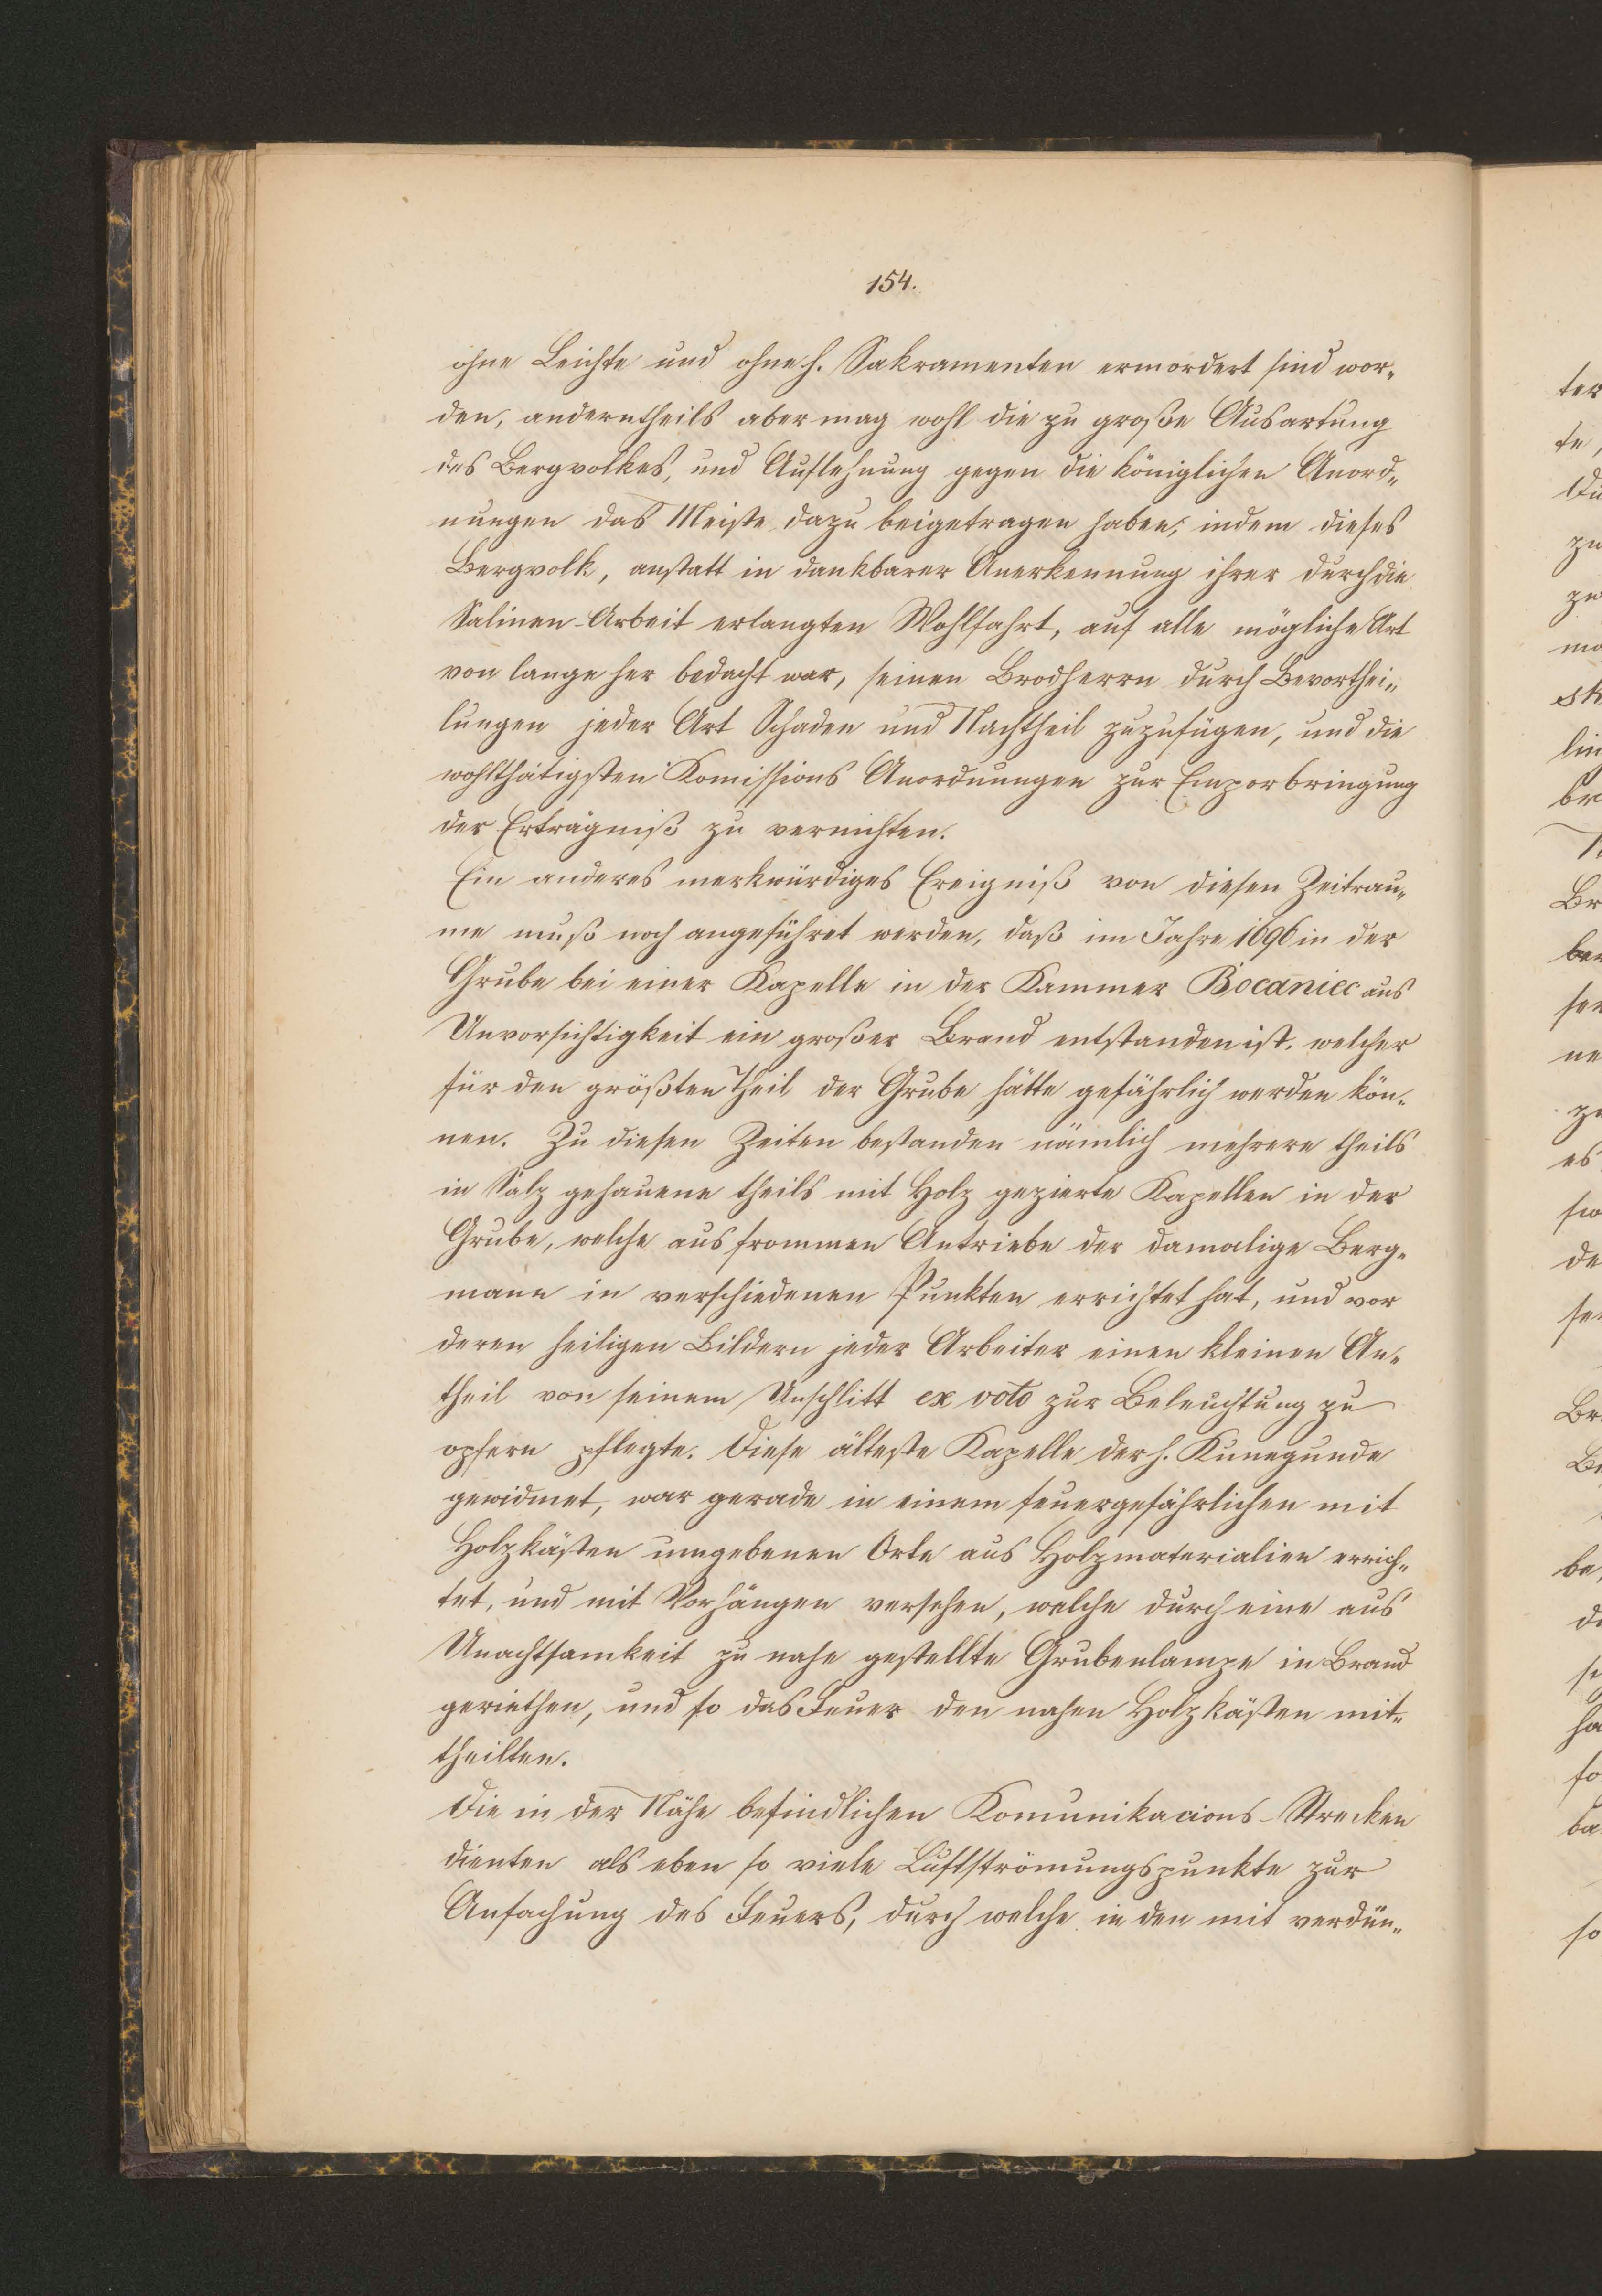 154.
ohne Beichte und ohne h. Sakramenten ermordert sind wor„
den, anderntheils aber mag wohl die zu große Ausartung
des Bergvolkes, und Auflehnung gegen die königlichen Anord„
nungen das Meiste dazu beigetragen haben; indem dieses
Bergvolk, anstatt in dankbarer Anerkennung ihrer durch die
Salinen-Arbeit erlangten Wohlfahrt, auf alle mögliche Art
von lange her bedacht war, seinen Brodherrn durch Bevorthei„
lungen jeder Art Schaden und Nachtheil zuzufügen, und die
wohlthätigsten Komissions Anordnungen zur Emporbringung
der Erträgniß zu vernichten.
Ein anderes merkwürdiges Ereigniß von diesen Zeitrau„
me muß noch angeführet werden, daß im Jahre 1696 in der
Grube bei einer Kapelle in der Kammer Bocaniec aus
Unvorsichtigkeit ein großer Brand entstanden ist, welcher
für den größten Theil der Grube hätte gefährlich werden kön„
nen. Zu diesen Zeiten bestanden nämlich mehrere theils
in Salz gehauene theils mit Holz gezierte Kapellen in der
Grube, welche aus frommen Antriebe der damalige Berg„
mann in verschiedenen Punkten errichtet hat, und vor
deren heiligen Bildern jeder Arbeiter einen kleinen An„
theil von seinem Unschlitt ex voto zur Beleuchtung zu
opfern pflegte. Diese älteste Kapelle der h. Kunegunde
gewidmet, war gerade in einem feuergefährlichen mit
Holzkästen umgebenen Orte aus Holzmaterialien errich„
tet, und mit Vorhängen versehen, welche durch eine aus
Unachtsamkeit zu nahe gestellte Grubenlampe in Brand
geriethen, und so das Feuer den nahen Holzkästen mit„
theilten.
Die in der Nähe befindlichen Komunikacions-Strecken
dienten als eben so viele Luftströmungspunkte zur
Anfachung des Feuers, durch welche in den mit verdün„